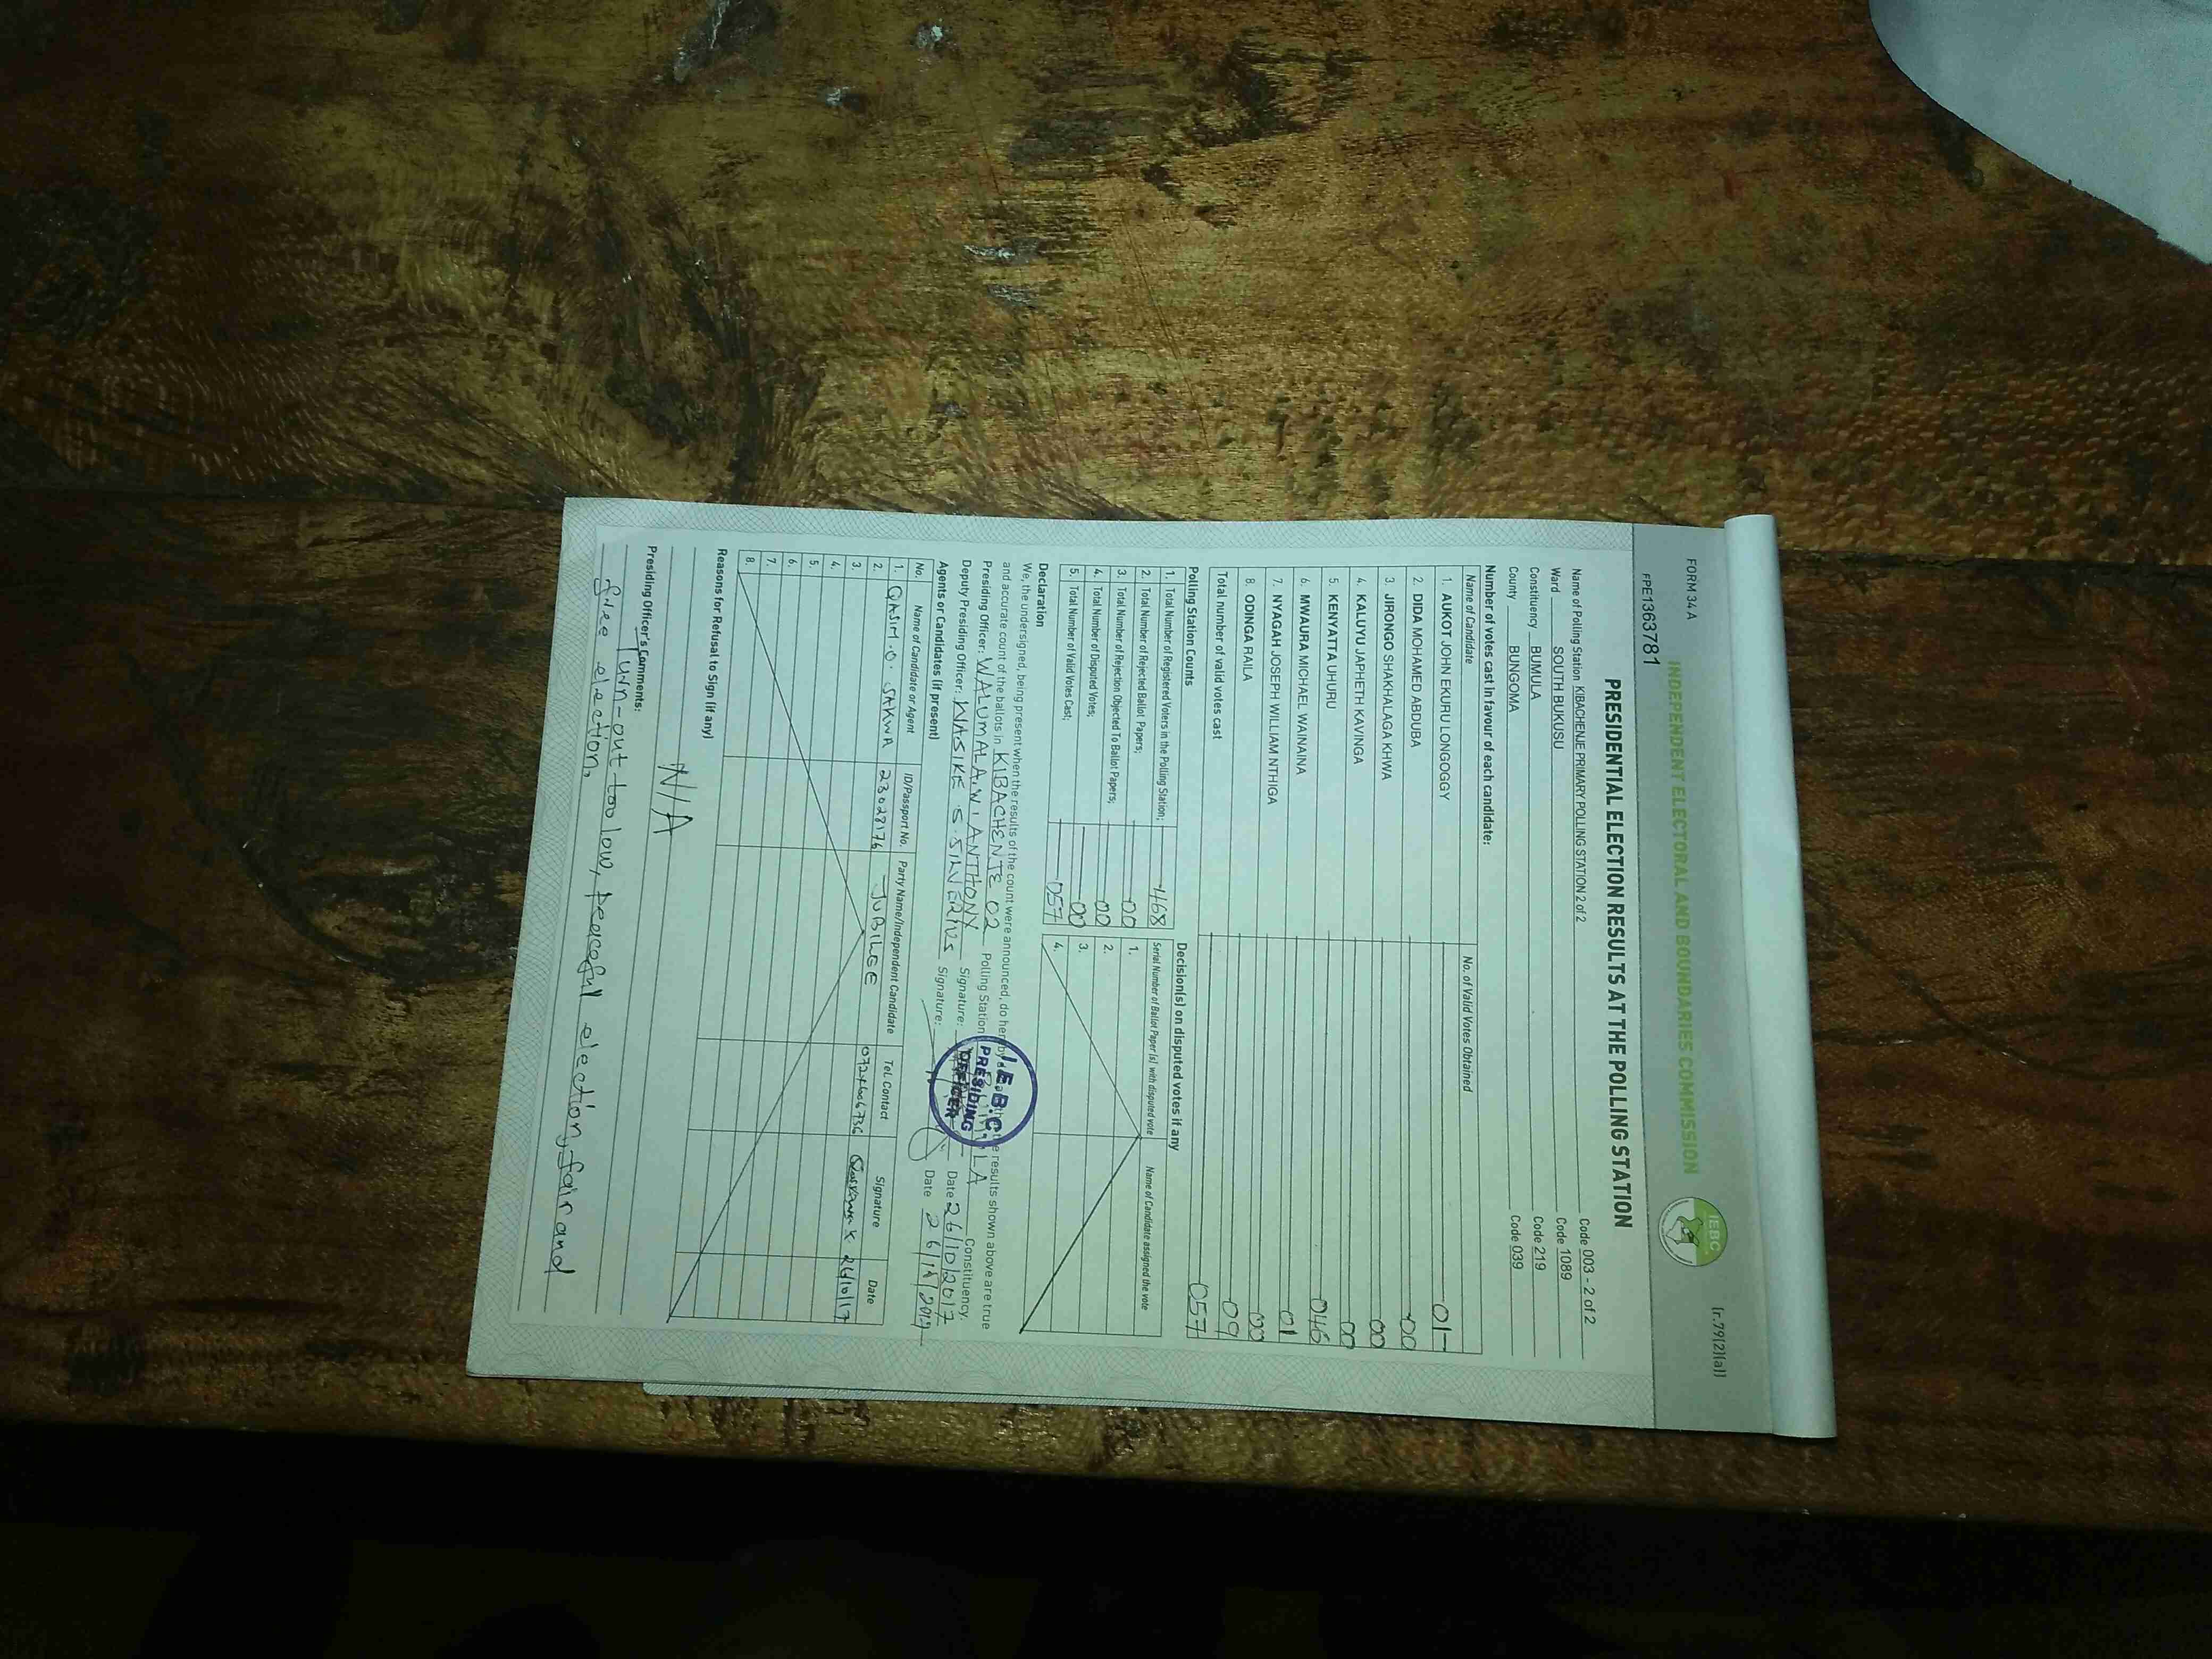 FORM 34 A (r.79(2)(a))
INDEPENDENT ELECTORAL AND BOUNDARIES COMMISSION
IEBC
FPE1363781
PRESIDENTIAL ELECTION RESULTS AT THE POLLING STATION
Name of Polling Station KIBACHENJE PRIMARY POLLING STATION 2 of 2 Code 003 - 2 of 2
Ward SOUTH BUKUSU Code 1089
Constituency BUMULA Code 219
County BUNGOMA Code 039
Number of votes cast in favour of each candidate:
Name of Candidate No. of Valid Votes Obtained
1. AUKOT JOHN EKURU LONGOGGY 01
2. DIDA MOHAMED ABDUBA 00
3. JIRONGO SHAKHALAGA KHWA 00
4. KALUYU JAPHETH KAVINGA 00
5. KENYATTA UHURU 046
6. MWAURA MICHAEL WAINAINA 01
7. NYAGAH JOSEPH WILLIAM NTHIGA 00
8. ODINGA RAILA 09
Total number of valid votes cast 057
Polling Station Counts
1. Total Number of Registered Voters in the Polling Station; 468
2. Total Number of Rejected Ballot Papers; 00
3. Total Number of Rejection Objected To Ballot Papers; 00
4. Total Number of Disputed Votes; 00
5. Total Number of Valid Votes Cast; 057
Decision(s) on disputed votes if any
Serial Number of Ballot Paper (s) with disputed vote Name of Candidate assigned the vote
1.
2.
3.
4.
Declaration
We, the undersigned, being present when the results of the count were announced, do hereby the results shown above are true
and accurate count of the ballots in KIBACHENJE 02 Polling Station Constituency.
Presiding Officer: WALUMALA.W. ANTHONY Signature: Date 26/10/2017
Deputy Presiding Officer: WASIKE .S. SILVERIUS Signature: Date 26/10/2017
I.E.B.C.
PRESIDING
OFFICER
Agents or Candidates (if present)
No. Name of Candidate or Agent ID/Passport No. Party Name/Independent Candidate Tel. Contact Signature Date
1. QASIM .O. SAKWA 23028176 JUBILEE 0724606736 26/10/17
2.
3.
4.
5.
6.
7.
8.
Reasons for Refusal to Sign (if any)
N/A
Presiding Officer's Comments:
Turn-out too low, peaceful election, fair and
free election.